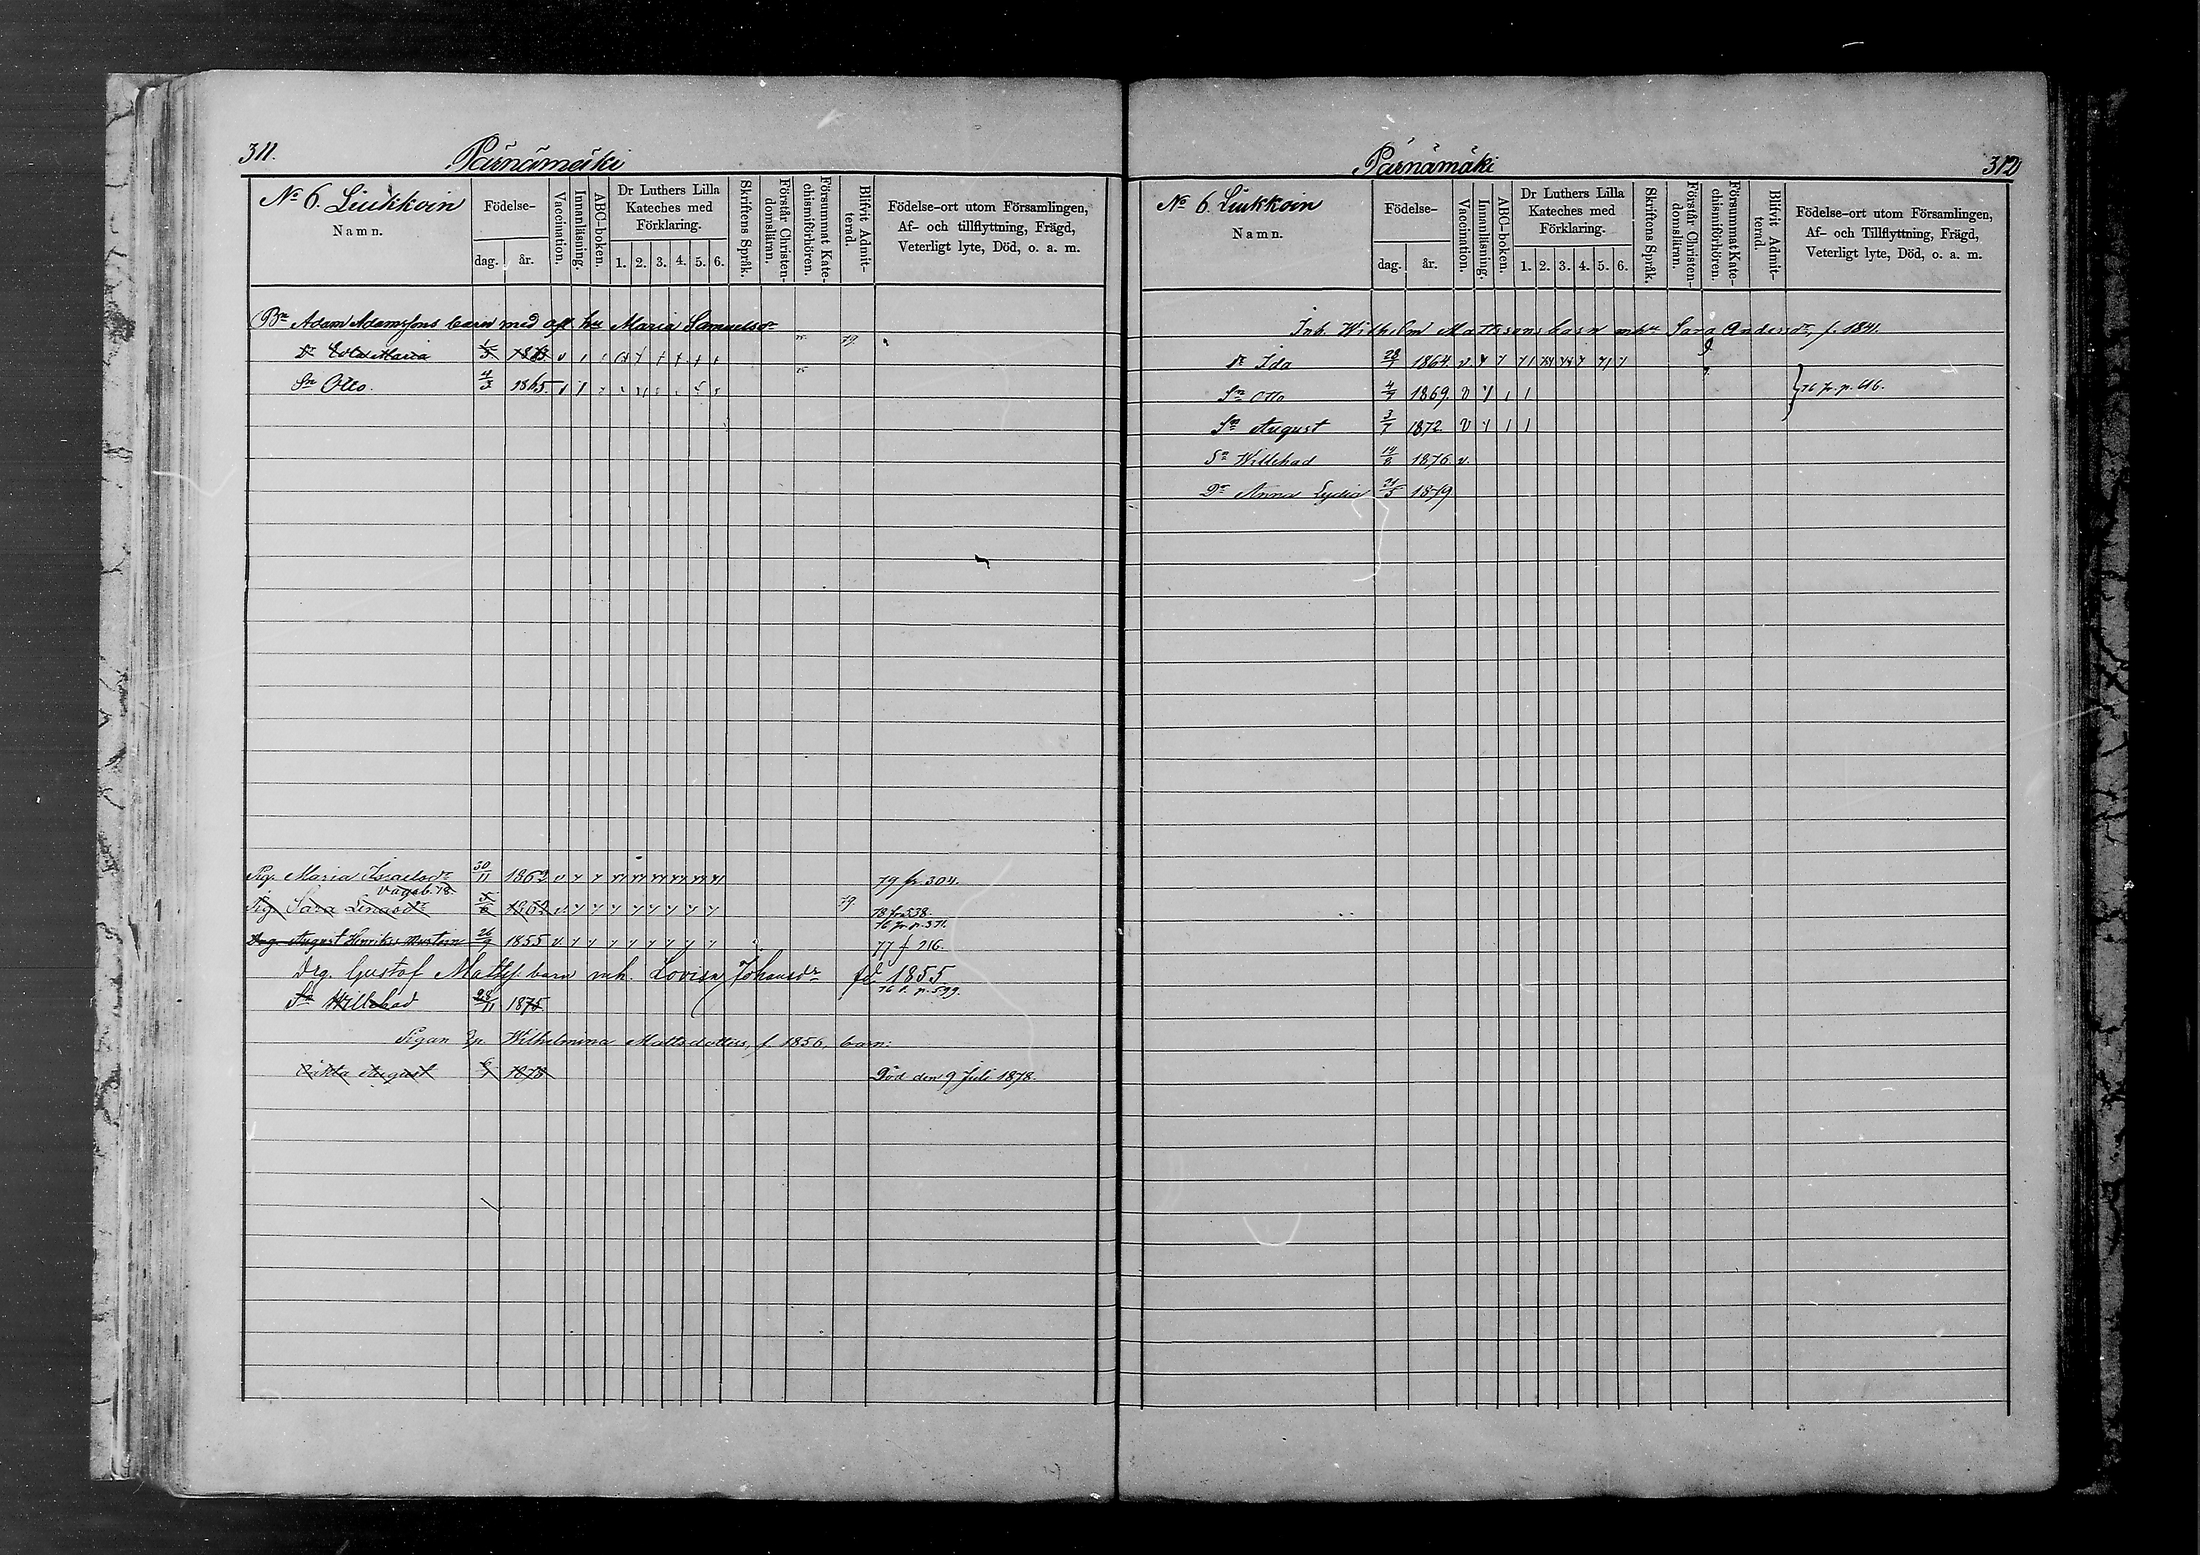 311.
Pärnämäki
No 6. Liukkoin
Namn.
Födelse-
dag.
år.
Vaccination.
Innanläsning.
ABC-boken.
Dr Luthers Lilla
Kateches med
Förklaring.
1. 2. 3. 4. 5. 6.
Skriftens Språk.
Förstår Christen-
domslärnn.
Försummat Kate-
chismiförhören.
Blifvit Admit-
terad.
Födelse-ort utom Församlingen,
Af- och tillflyttning, Frägd,
Veterligt lyte, Död, o. a. m.
Bn Adam Adamssons barn med afl. hu Maria Samuelsdr
Dr Eva Maria 1863 v 79
Sn Otto. 4/3 1865
Pig. Maria Israelsdr 30/11 1862 v 79 fr. 304.
vagab. 78
Pig. Sara Lenasdr 1862 v. 79 78 fr 338.
76 fr. p. 371.
Drg. August Henrikss 26/9 1855 v. 77 f 216.
Drg. Gustaf Matss. barn mh. Lovisa Johansdr fd. 1855
76 p. 599.
Sn Willehad 28/11 1875
Pigan Wilhelmina Mattsdotters, f. 1856, barn:
oäkta August 1878 Död den 9 Juli 1878.
312
Pärnämäki
No 6. Liukkoin
Namn.
Födelse-
dag.
år.
Vaccination.
Innanläsning.
ABC-boken.
Dr Luthers Lilla
Kateches med
Förklaring.
1. 2. 3. 4. 5. 6.
Skriftens Språk.
Förstår Christen-
domslärnn.
Försummat Kate-
chismiförhören.
Blifvit Admit-
terad.
Födelse-ort utom Församlingen,
Af- och Tillflyttning, Frägd,
Veterligt lyte, Död, o. a. m.
Inh. Wilhelm Mattssons barn mhu Sara Andersdr f. 1841.
dr Ida 1864. v.
Sn Otto 1869. v 76 fr. p. 616.
Sn August 3/7 1872. v
Sn Willehad 1876. v.
Dr Anna Lydia 21/5 1879